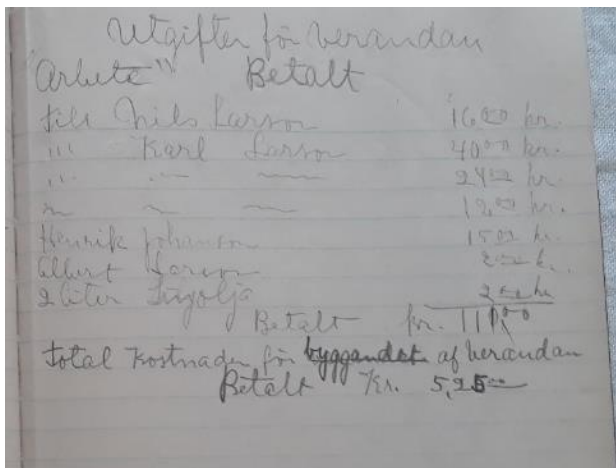 Utgifter för verandan
"Arbete" Betalt
till Nils Larson 16.00 kr.
" Karl Larson 40.00 kr.
" — — 24.00 kr.
" — — 12.00 kr.
Henrik Johanson 15.00 kr.
Albert Larson 2.00 k.
2 liter Linolja 2.00 kr
Betalt kr. 111.00
Total kostnader för byggandet af verandan
Betalt Kr. 525.00